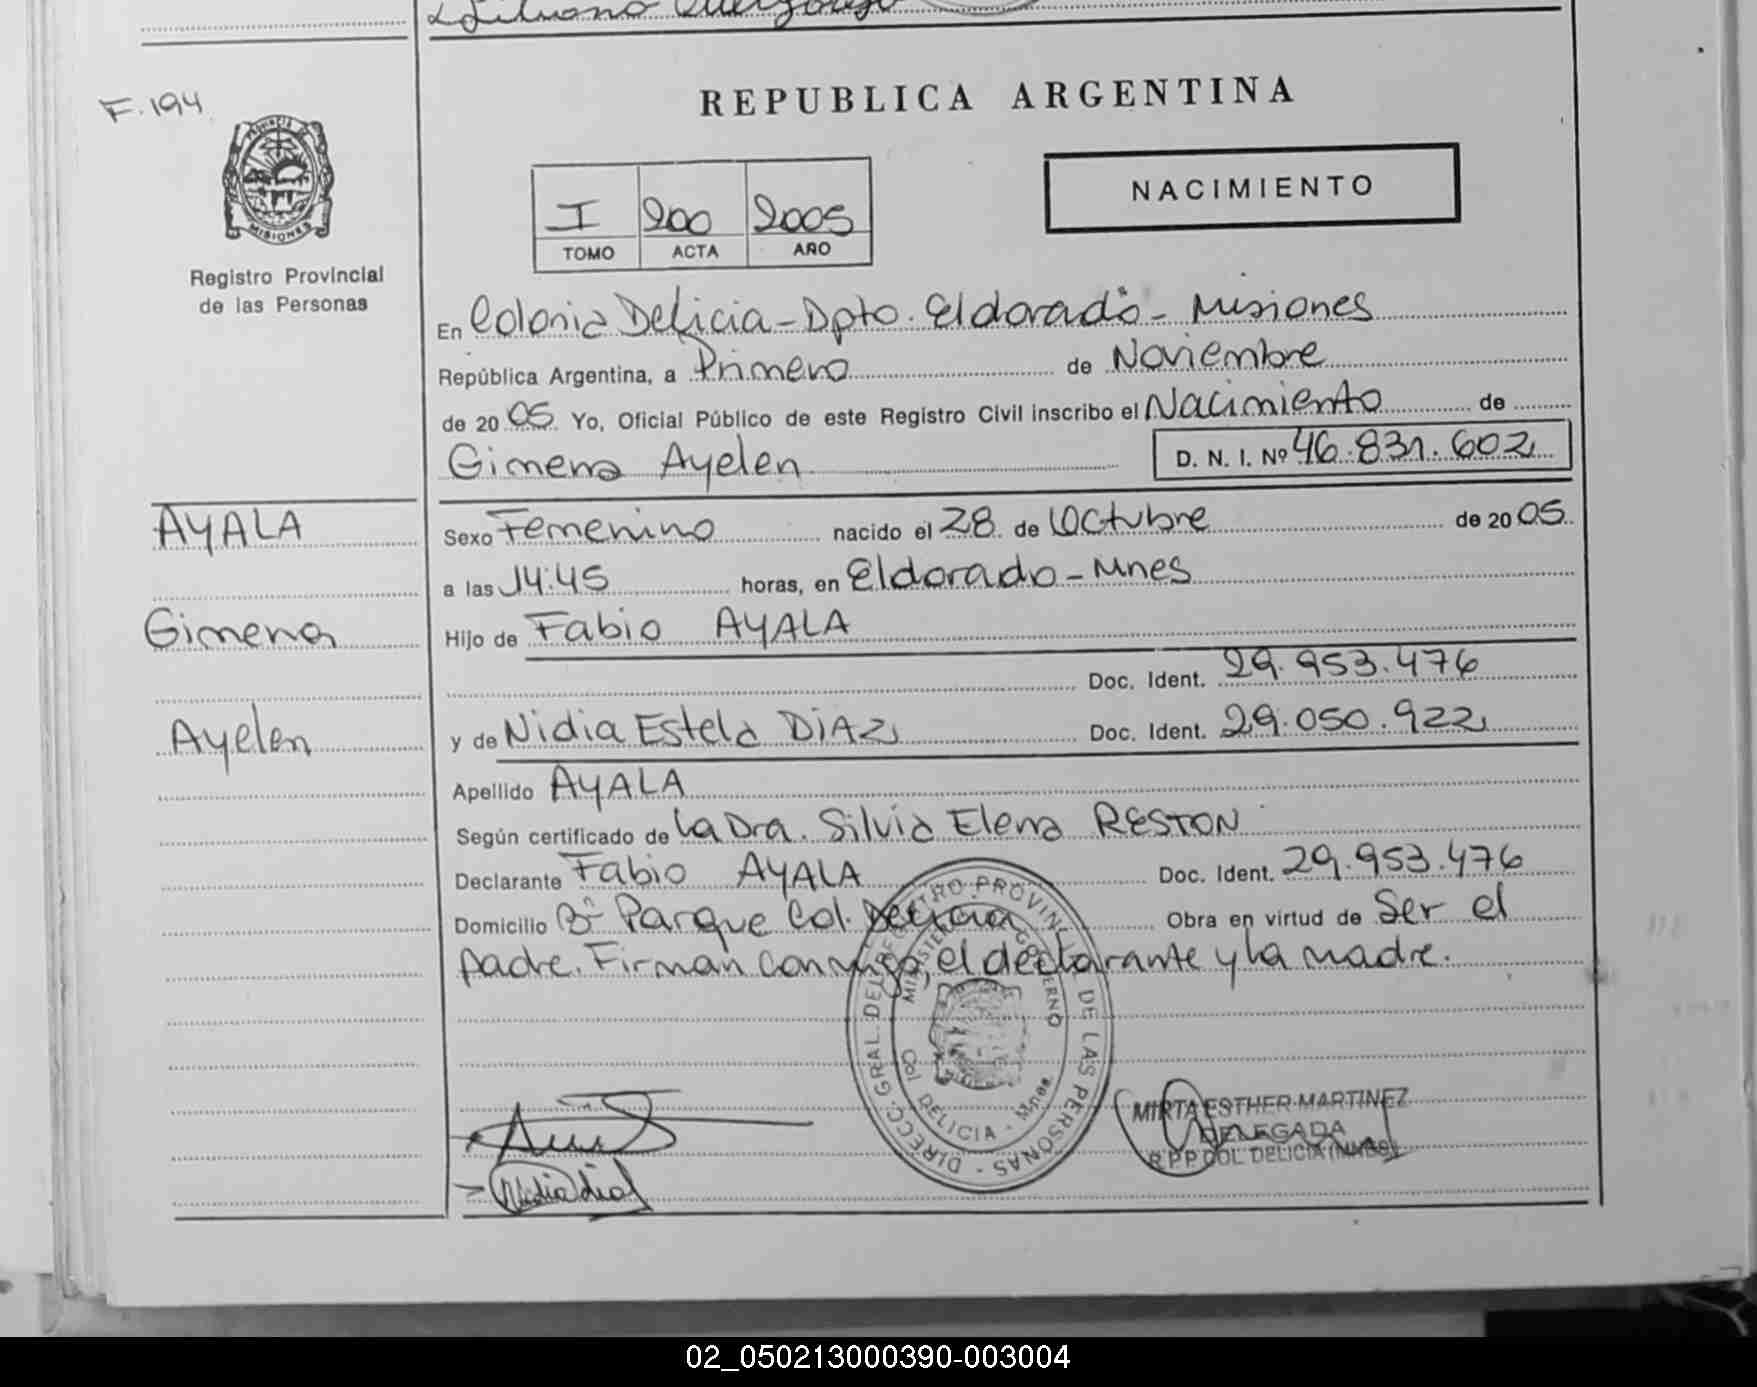 F.194
PROVINCIA DE
MISIONES
Registro Provincial
de las Personas
REPUBLICA ARGENTINA
I 200 2005
TOMO ACTA AÑO
NACIMIENTO
En Colonia Delicia - Dpto. Eldorado - Misiones
República Argentina, a Primero de Noviembre
de 2005 Yo, Oficial Público de este Registro Civil inscribo el Nacimiento de
Gimena Ayelen D. N. I. Nº 46.831.602
AYALA
Gimena
Ayelen
Sexo Femenino nacido el 28 de Octubre de 2005
a las 14:45 horas, en Eldorado - Mnes
Hijo de Fabio AYALA
Doc. Ident. 29.953.476
y de Nidia Estela DIAZ Doc. Ident. 29.050.922
Apellido AYALA
Según certificado de La Dra. Silvia Elena RESTON
Declarante Fabio AYALA Doc. Ident. 29.953.476
Domicilio Bº Parque Col. Delicia Obra en virtud de Ser el
padre. Firman conmigo, el declarante y la madre.
DIRECC. GRAL. DEL REGISTRO PROVINCIAL DE LAS PERSONAS
Col. DELICIA - Mnes
Nidia diaz
MIRTA ESTHER MARTINEZ
DELEGADA
R.P.P COL DELICIA (MNES)
02_050213000390-003004